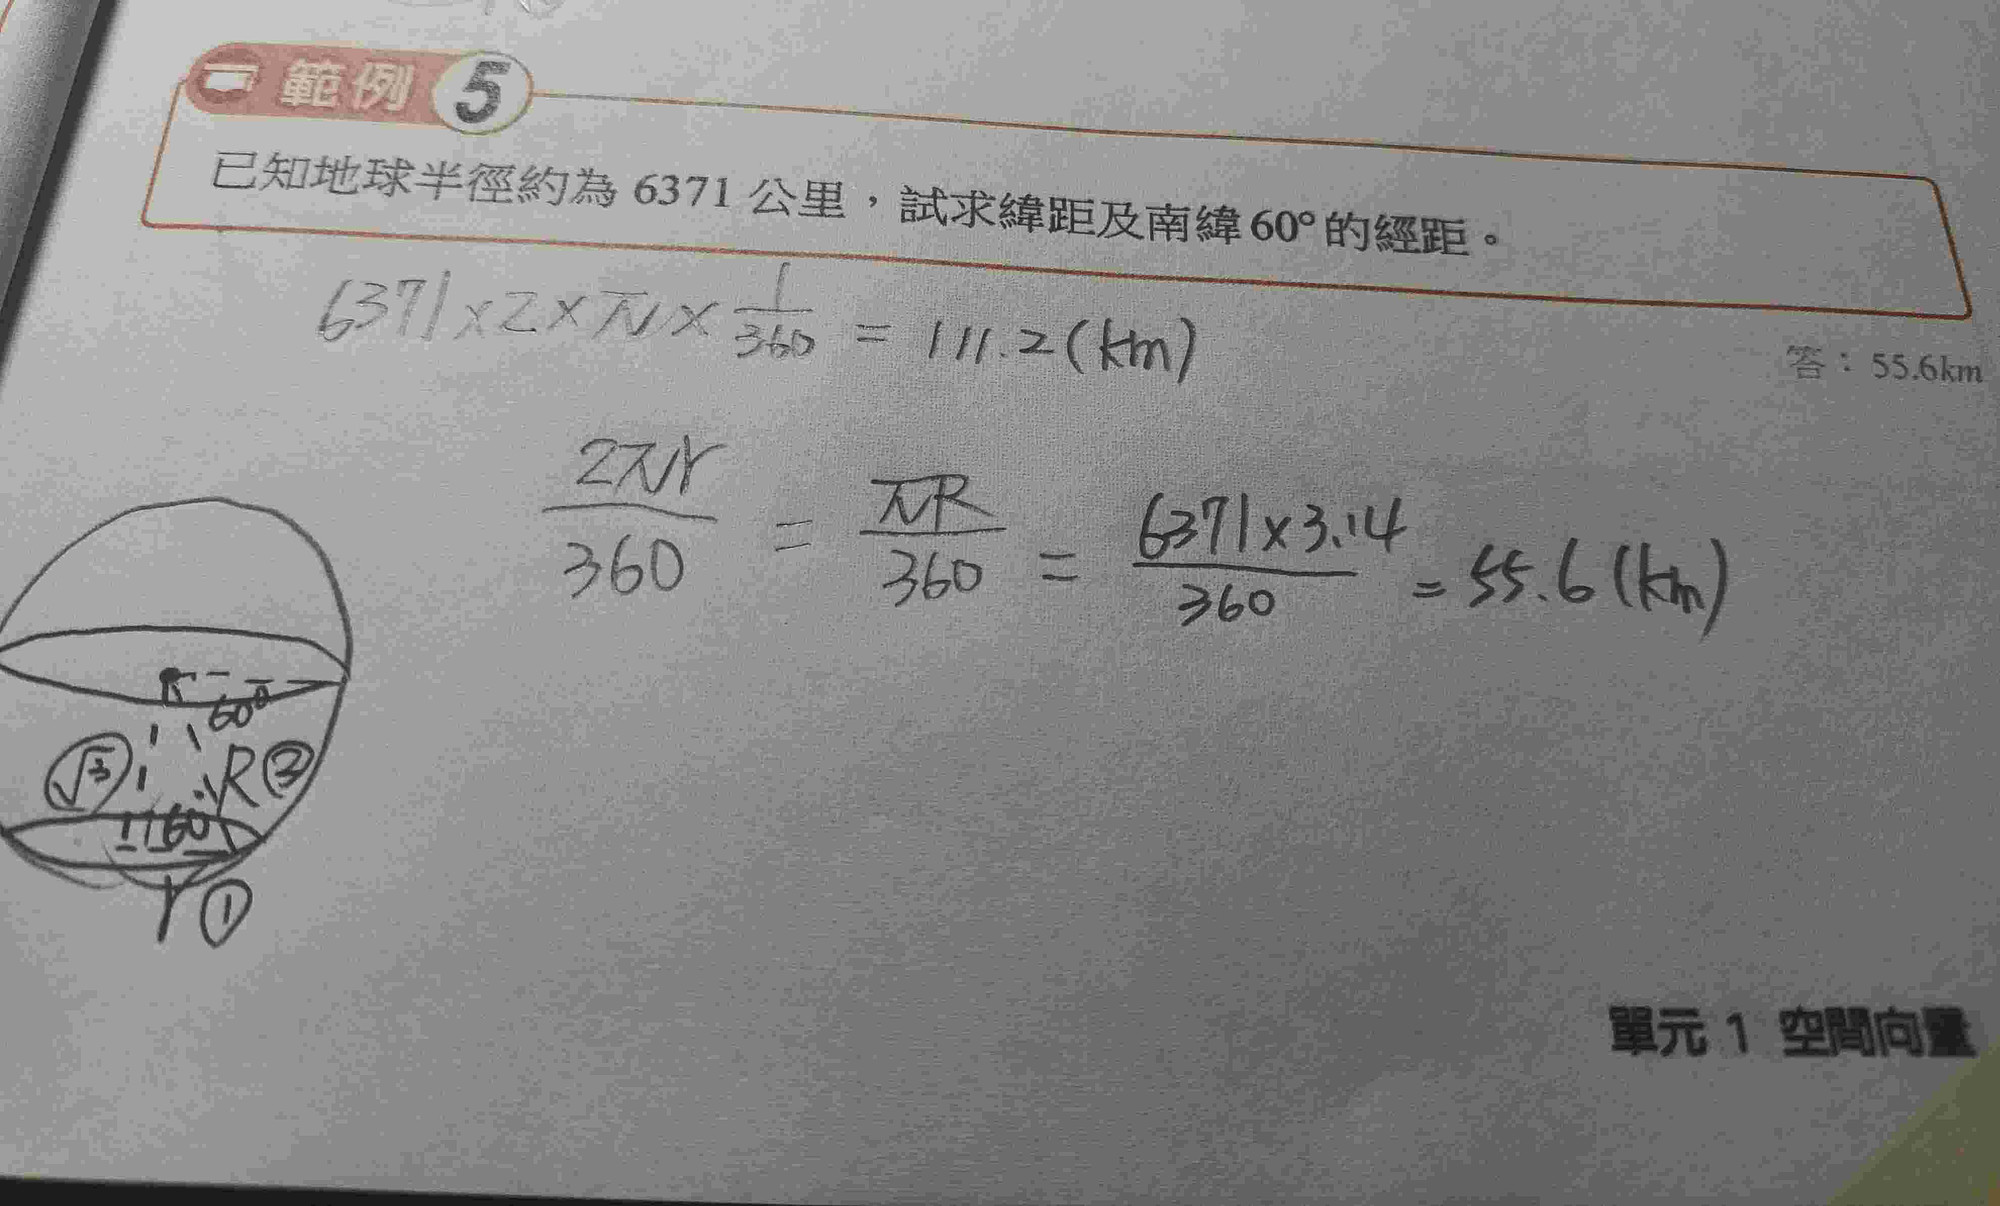 範例 5
已知地球半徑約為 6371 公里，試求緯距及南緯 60° 的經距。
6371 × 2 × π × 1/360 = 111.2 (km)
答：55.6km
2πr/360 = πR/360 = 6371×3.14/360 = 55.6 (km)
R
60°
√3 R ②
60
r ①
單元 1 空間向量